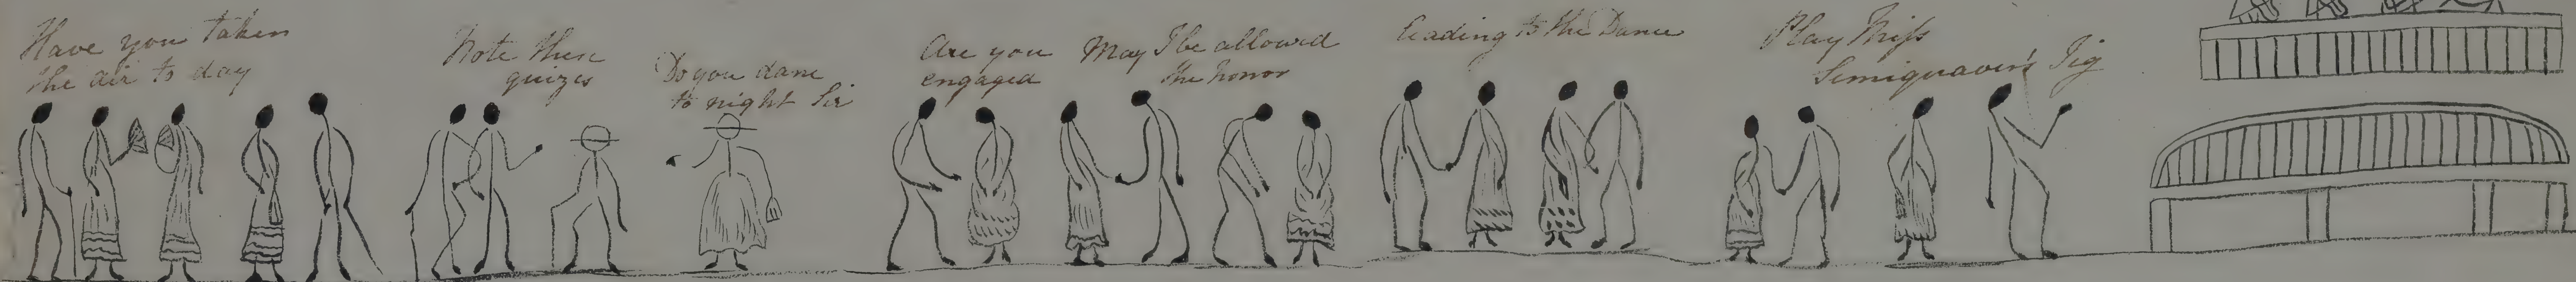 Have you taken
the air to day
Note these
quizes
Do you dane
to night Sir
Are you
engaged
May I be allowed
the honor
Leading to the Dance
Play Miſs
Semiquaver's Jig